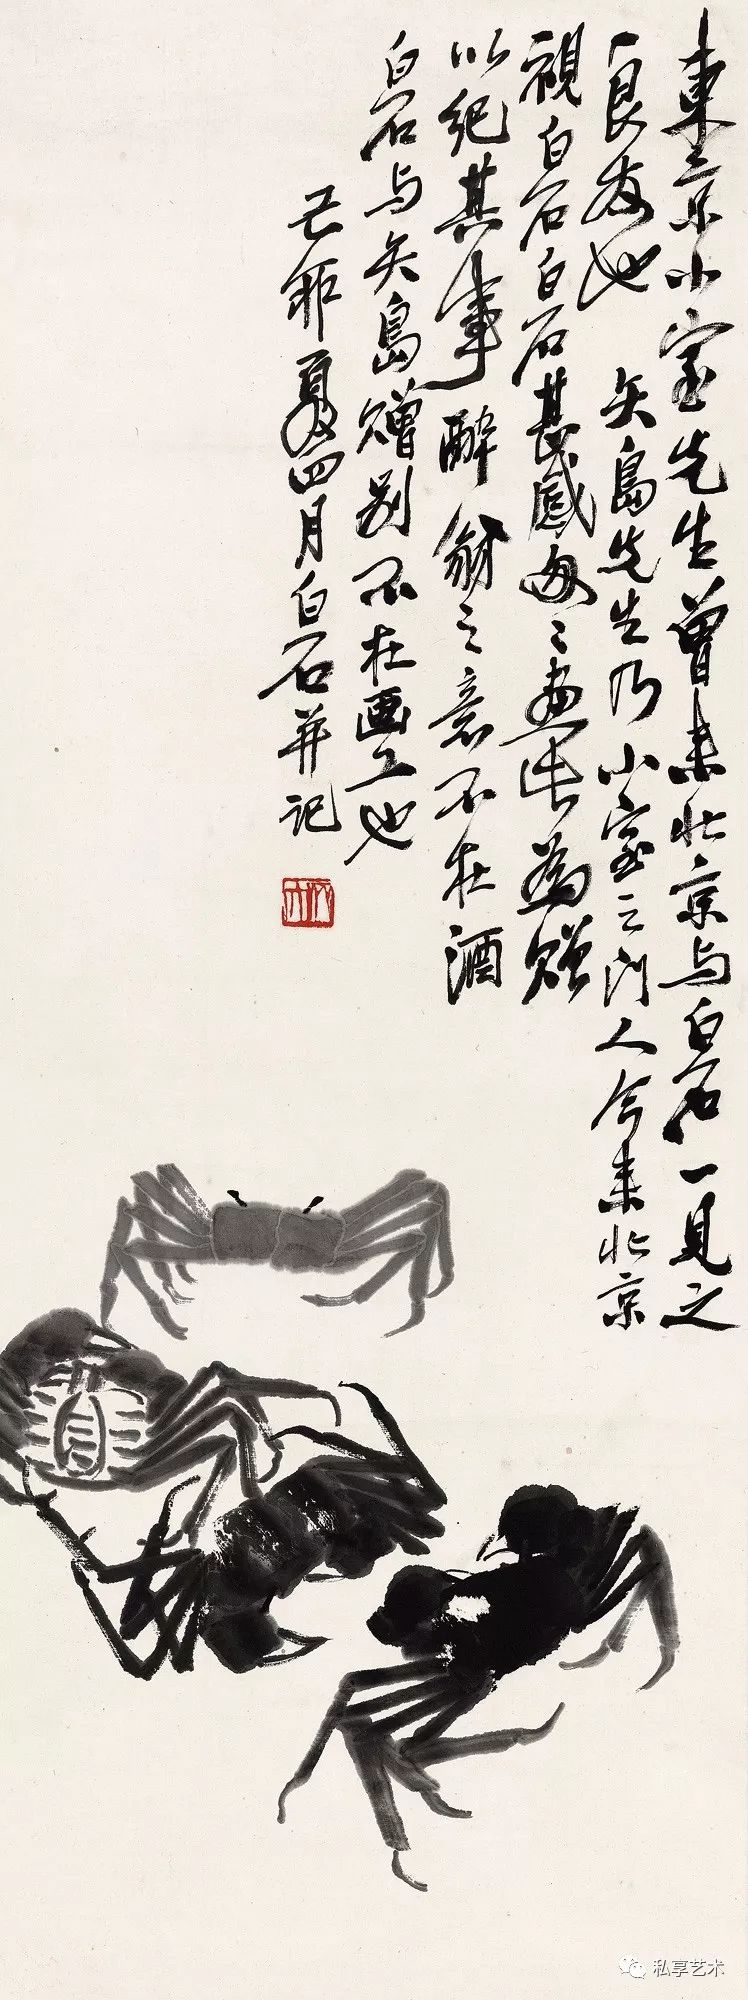 東京小室先生曾来北京与白石一見之
良友也 矢島先生乃小室之门人今来北京
視白石白石甚感畫此為贈
以紀其事醉翁之意不在酒
白石与矢島贈别不在画工也
夏四月白石并記
私享艺术